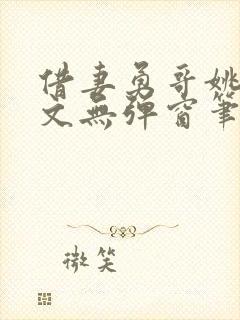 借妻勇哥姚
文無彈窗筆
微笑